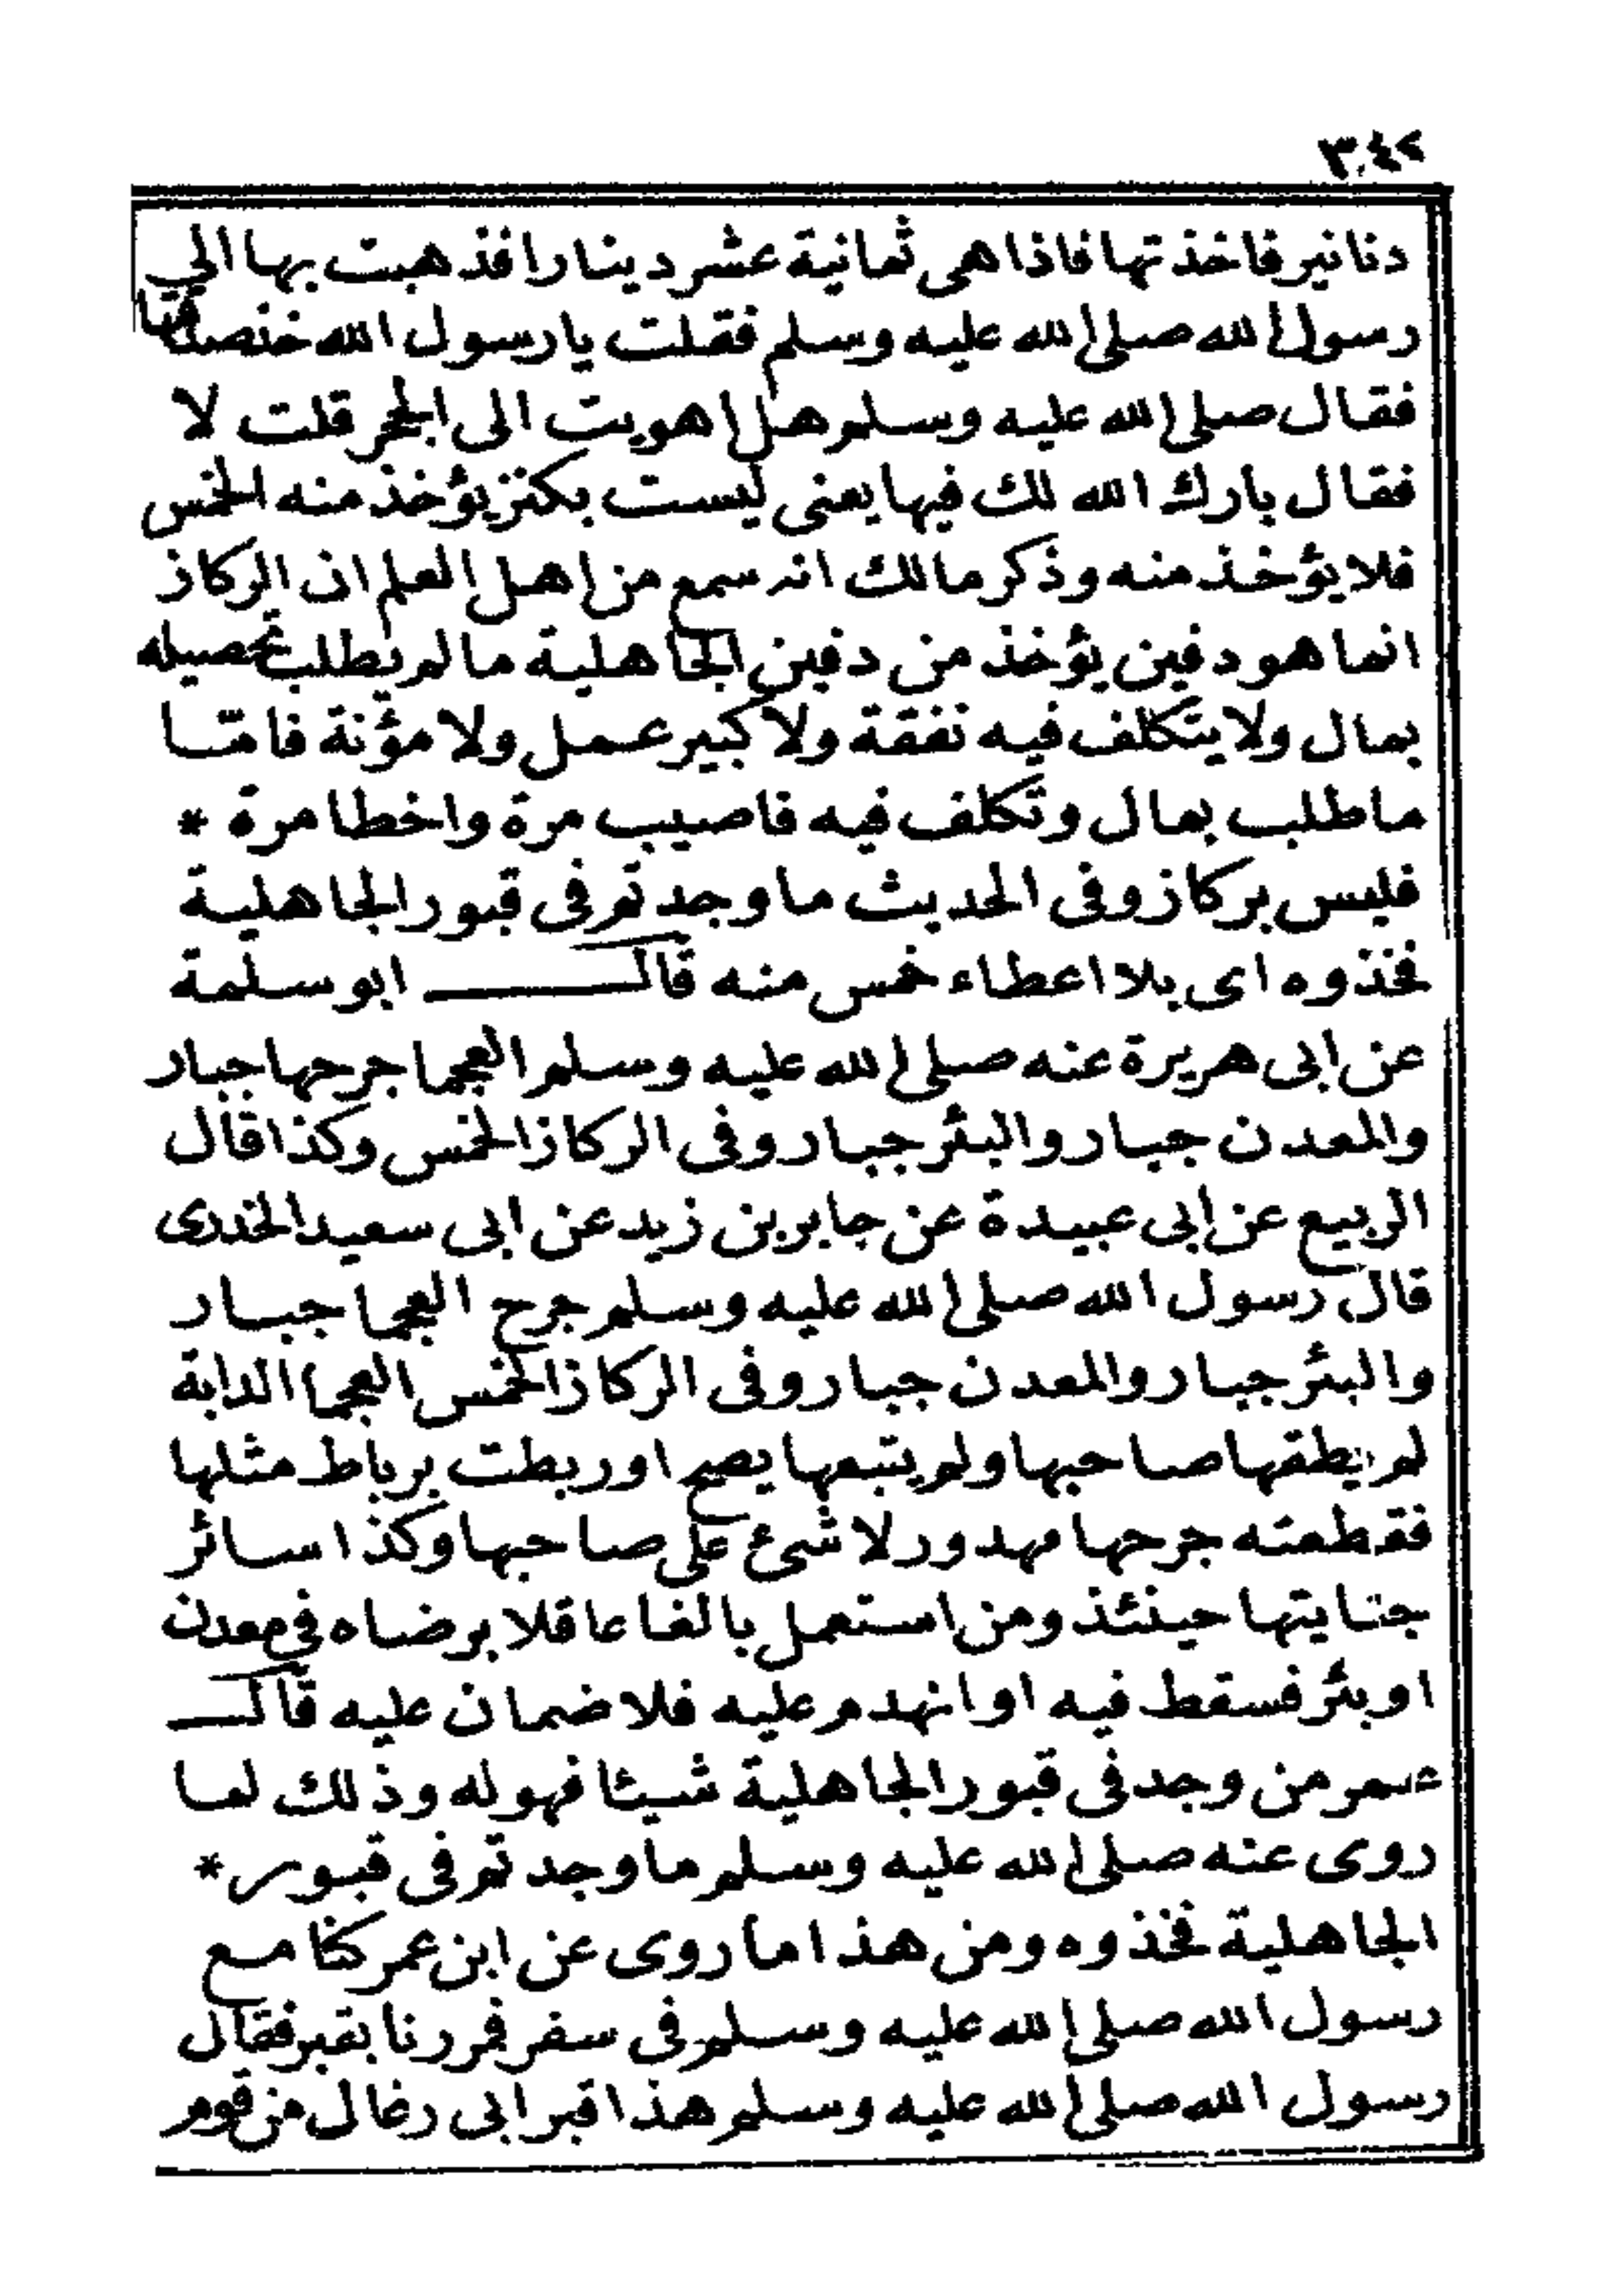 ٣٤٢
دنانير فاخذتها فاذا هى ثمانية عشر دينارا فذهبت بها الى
رسول الله صلى الله عليه وسلم فقلت يا رسول الله خذ صدقتها
فقال صلى الله عليه وسلم هل اهويت الى الجحر قلت لا
فقال بارك الله لك فيها يعنى ليست بكنز يؤخذ منه الخمس
فلا يؤخذ منه وذكر مالك انه سمع من اهل العلم ان الركاز
انما هو دفين يؤخذ من دفين الجاهلية ما لم يطلب تحصيله
بمال ولا يتكلف فيه نفقة ولا كبير عمل ولا مؤنة فامّا
ما طلب بمال وتكلف فيه فاصيب مرة واخطا مرة *
فليس بركاز وفى الحديث ما وجدتم فى قبور الجاهلية
فخذوه اى بلا اعطاء خمس منه قال ابو سلمة
عن ابى هريرة عنه صلى الله عليه وسلم العجما جرحها جبار
والمعدن جبار والبئر جبار وفى الركاز الخمس وكذا قال
الربيع عن ابى عبيدة عن جابر بن زيد عن ابى سعيد الخدرى
قال رسول الله صلى الله عليه وسلم جرح العجما جبار
والبئر جبار والمعدن جبار وفى الركاز الخمس العجما الدابة
لم يطقها صاحبها ولم يتبعها يصح او ربطت برباط مثلها
فقطعته جرحها مهدور لا شئ على صاحبها وكذا سائر
جنايتها حينئذ ومن استعمل بالغا عاقلا برضاه فى معدن
او بئر فسقط فيه او انهدم عليه فلا ضمان عليه قال
عمر من وجد فى قبور الجاهلية شيئا فهو له وذلك لما
روى عنه صلى الله عليه وسلم ما وجدتم فى قبور *
الجاهلية فخذوه ومن هذا ما روى عن ابن عمر كنا مع
رسول الله صلى الله عليه وسلم فى سفر فمررنا بقبر فقال
رسول الله صلى الله عليه وسلم هذا قبر ابى رغال من قوم